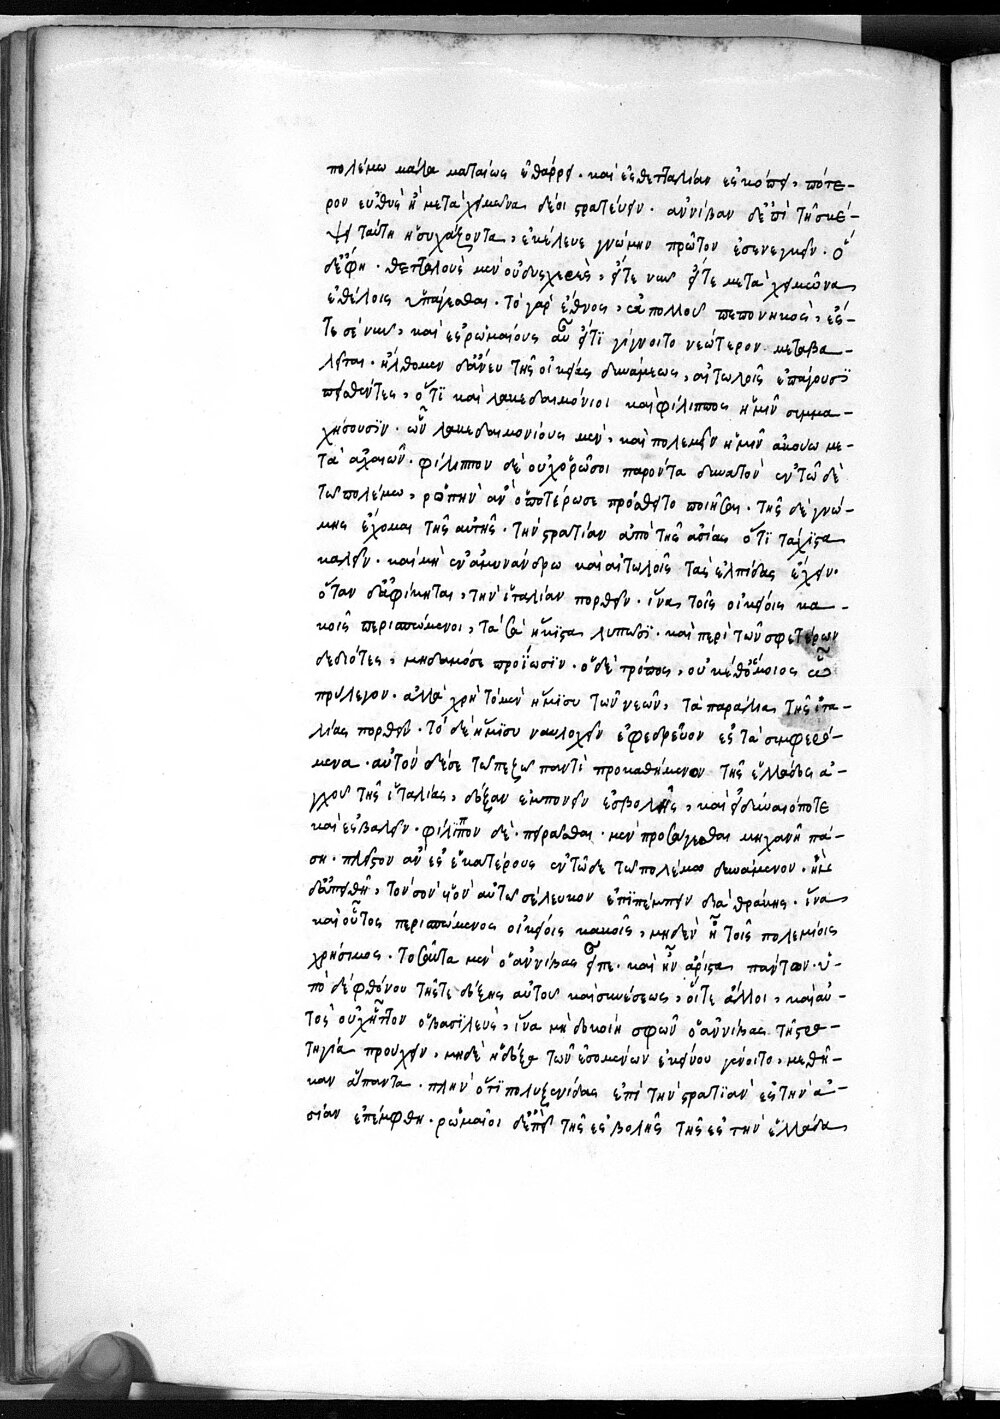 πολέμω μάλα ματαίως ἐθάρρει· καὶ ἐς θετταλίαν ἐσκόπει, πότε-
ρον εὐθὺς ἢ μετὰ χειμῶνα δέοι στρατεύειν. ἀννίβαν δ' ἐπὶ τῆ σκέ-
ψει ταύτη ἡσυχάζοντα, ἐκέλευε γνώμην πρῶτον ἐσενεγκεῖν. ὁ
δ' ἔφη· θετταλοὺς μὲν οὐ δυσχερὲς, εἴτε νῦν εἴτε μετὰ χειμῶνα
ἐθέλοις ὑπάγεσθαι. τὸ γὰρ ἔθνος, ἐκ πολλοῦ πεπονηκὸς, ἔς
τε σὲ νῦν, καὶ ἐς ῥωμαίους αὖ εἴ τι γίγνοιτο νεώτερον μεταβα-
λεῖται. ἤλθομεν δ' ἄνευ τῆς οἰκείας δυνάμεως, αἰτωλοῖς ἐπάγουσϊ
πεισθέντες, ὅτι καὶ λακεδαιμόνιοι καὶ φίλιππος ἡμῖν συμμα-
χήσουσϊν. ὧν λακεδαιμονίους μὲν, καὶ πολεμεῖν ἡμῖν ἀκούω με-
τὰ ἀχαιῶν. φίλιππον δὲ οὐχ ὁρῶ σοι παρόντα δυνατὸν ἐν τῶδε
τῶ πολέμω, ῥοπὴν ἂν ὁποτέρωσε πρόσθειτο ποιῆσαι. τῆς δὲ γνώ-
μης ἔχομαι τῆς αὐτῆς. τὴν στρατιὰν ἀπὸ τῆς ἀσίας ὅτϊ τάχιστα
καλεῖν. καὶ μὴ ἐν ἀμυνάνδρω καὶ αἰτωλοῖς τὰς ἐλπίδας ἔχειν.
ὅταν δ' ἀφίκηται, τὴν ἰταλίαν πορθεῖν. ἵνα τοῖς οἰκείοις κα-
κοῖς περισπώμενοι, τὰ σὰ ἥκϊστα λυπῶσϊ· καὶ περὶ τῶν σφετέρων
δεδιότες, μηδαμόσε προΐωσϊν. ὁ δὲ τρόπος, οὐκέθ' ὅμοιος ᾧ
προύλεγον. ἀλλὰ χρὴ τὸ μὲν ἥμισυ τῶν νεῶν, τὰ παράλια τῆς ἰτα-
λίας πορθεῖν. τὸ δὲ ἥμισυ ναυλοχεῖν ἐφεδρεῦον ἐς τὰ συμφερό-
μενα. αὐτὸν δὲ σὲ τῶ πεζῶ παντὶ προκαθήμενον τῆς ἑλλάδος ἀ-
γχοῦ τῆς ἰταλίας, δόξαν ἐμποιεῖν ἐσβολῆς, καὶ εἰ δύναιό ποτε
καὶ ἐσβαλεῖν. φίλιππον δὲ· πειρᾶσθαι· μὲν προσάγεσθαι μηχανῆ πά-
ση. πλεῖστον ἂν ἐς ἑκατέρους ἐν τῶδε τῶ πολέμω δυνάμενον. ἢν
δ' ἀπειθῆ, τὸν σὸν υἱὸν αὐτῶ σέλευκον ἐπϊπέμπειν διὰ θράκης. ἵνα
καὶ οὗτος περισπώμενος οἰκείοις κακοῖς, μηδὲν ᾖ τοῖς πολεμίοις
χρήσιμος. τοσαῦτα μὲν ὁ ἀννίβας εἶπε. καὶ ἦν ἄριστα πάντων. ὑ-
πὸ δὲ φθόνου τῆς τε δόξης αὐτοῦ καὶ συνέσεως, οἵ τε ἄλλοι, καὶ αὐ-
τὸς οὐχ ἧττον ὁ βασϊλεὺς, ἵνα μὴ δοκοίη σφῶν ὁ ἀννίβας τῆ στρα-
τηγία προύχειν, μηδὲ ἡ δόξα τῶν ἐσομένων ἐκείνου γένοιτο, μεθῆ-
καν ἅπαντα. πλὴν ὅτι πολυξενίδας ἐπὶ τὴν στρατϊὰν ἐς τὴν ἀ-
σίαν ἐπέμφθη. ῥωμαῖοι δ' ἐπεὶ τῆς ἐσβολῆς τῆς ἐς τὴν ἑλλάδα